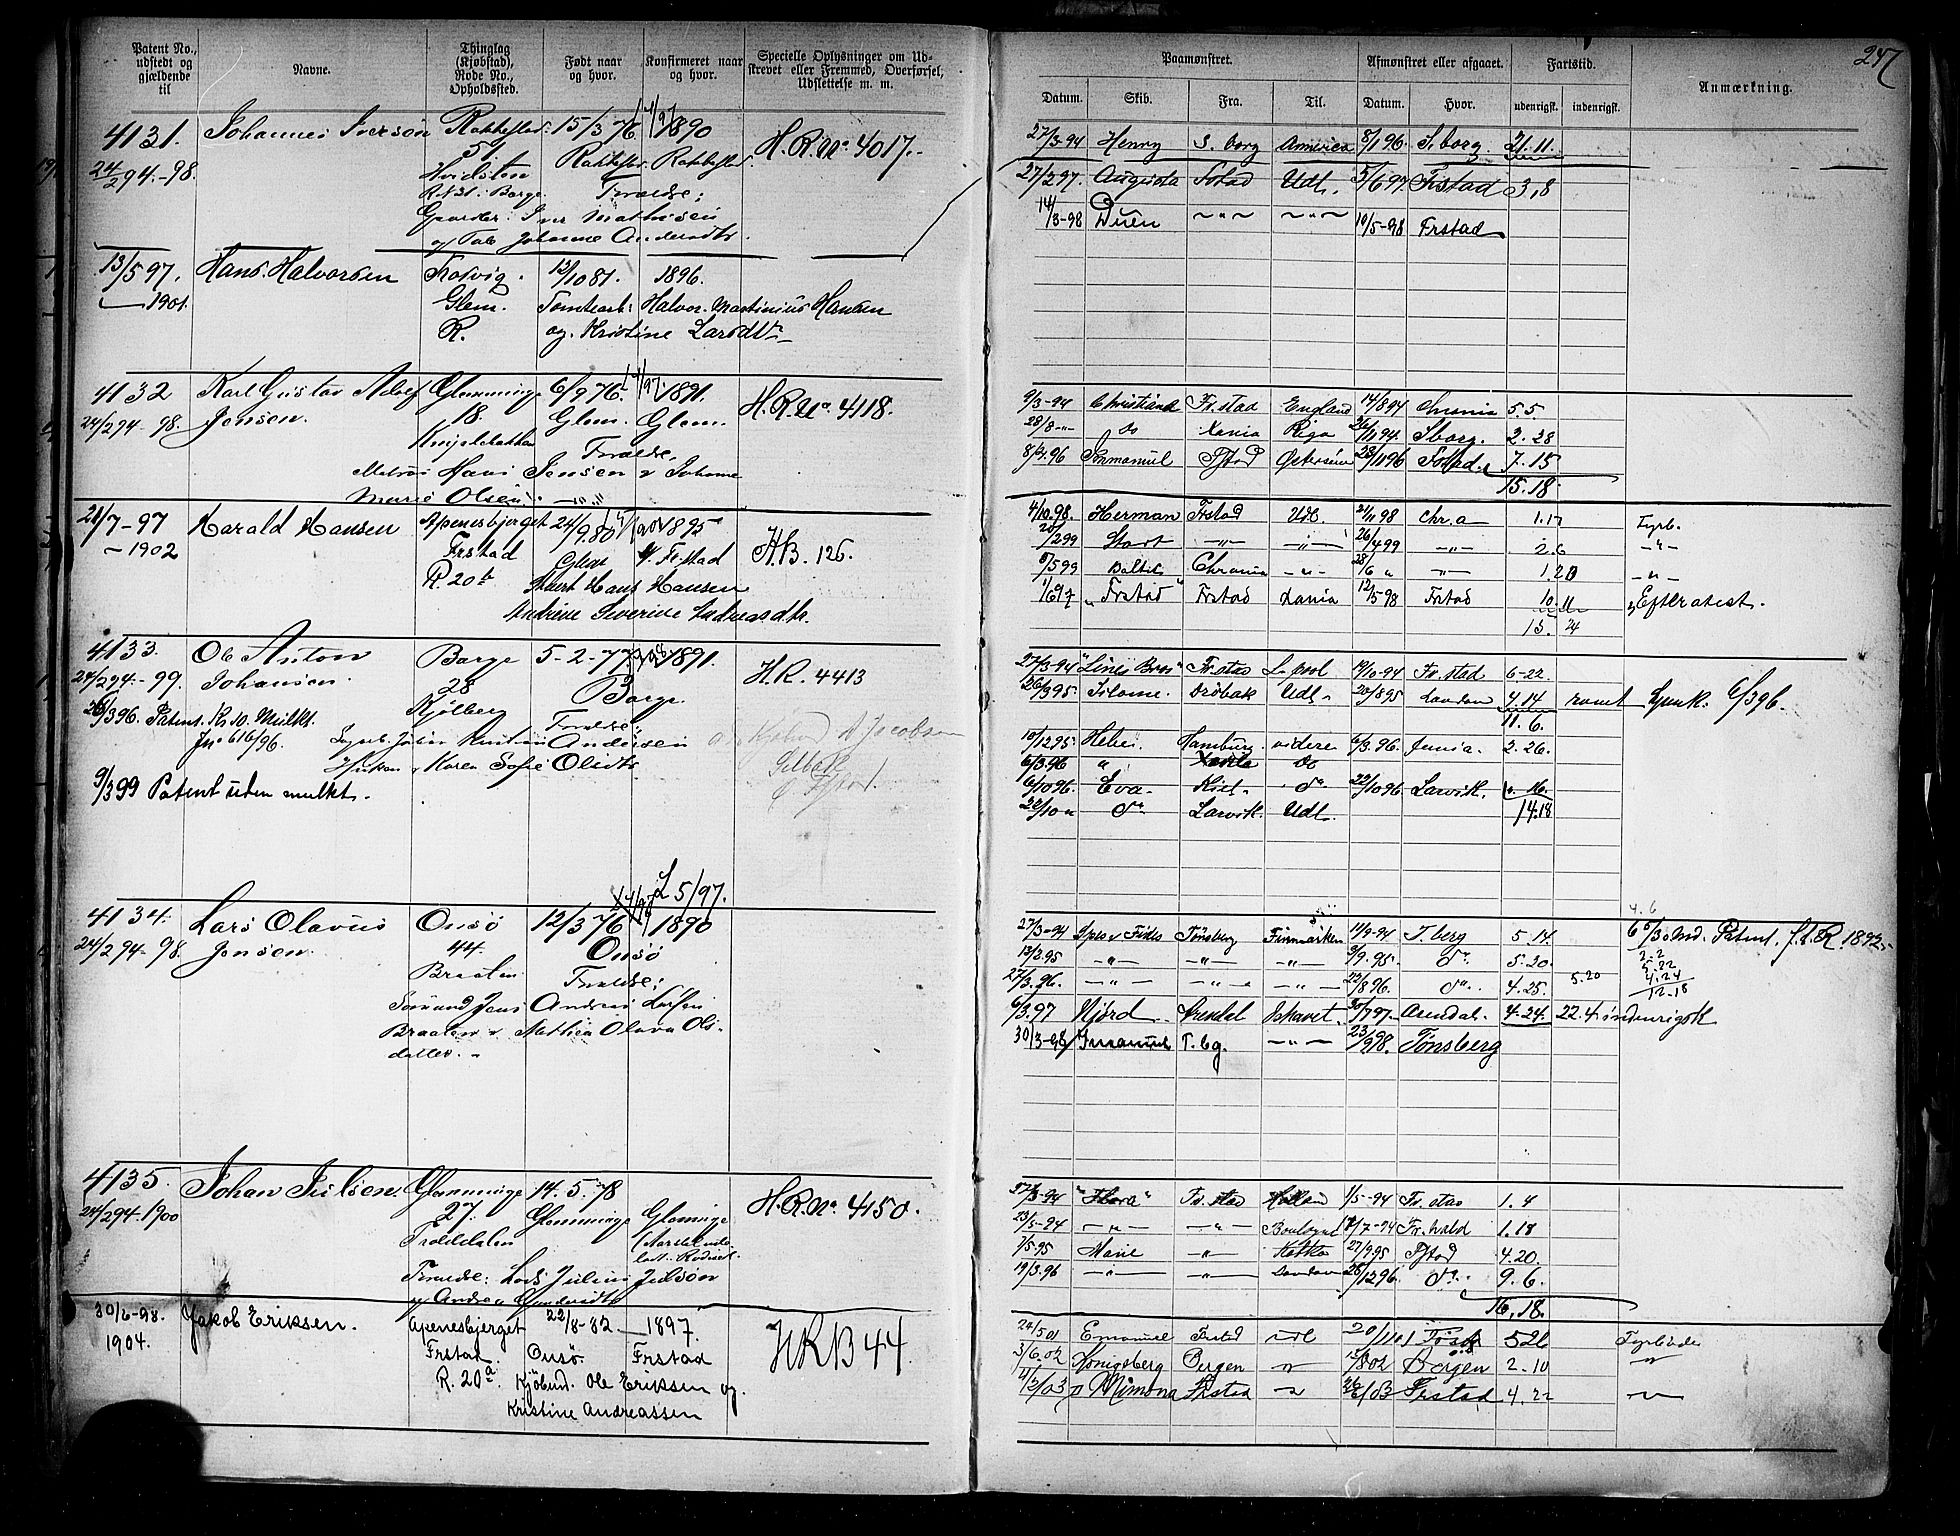 247
Patent No., udstedt og gjældende til
Navne.
Thinglag (Kjøbstad), Rode No., Opholdssted.
Født naar og hvor.
Konfirmeret naar og hvor.
Specielle Oplysninger om Udstrevet eller Fremmed, Overførsel, Udslettelse m. m.
4131. Johannes Iversen 15/3 76 1890 H.R.No. 4017.
24/2 94.-98. 51
Hvidsten
Forældre:
Gaardbr: Iver Mathisen
og Tale Johanne
13/5 97. Hans. Halvorsen 12/10 81. 1896.
1901. Glem. Tomtearb: Halvor. Martinius Hansen
R. og. Kristine Larsdtr
4132 Karl Gustav Adolf Glemminge 6/9 76. 1891. H.R.No. 4118.
24/2 94-98. Jensen. 18. Glem. Glem.
Forældre,
Matros Hans Jensen & Johanne
Marie Olsen
21/7-97 Harald Hansen Apenesbjerget 24/9.80 1895
-1902 Frstad Glem Frstad H.B. 126.
R. 20b Hans Hansen
Andrine Severine Andreasdtr.
4133. Ole Anton Borge 5-2-77 1891. H.R. 4413
24/2 94.-99. Johansen. 28 Borge.
26/3 96. Patent. Kr. 10. Mulkt. Kjølberg Forældre:
Jno 616/96. Andersen
Karen Sofie Olsdtr
9/3 99 Patent uden mulkt.
L 5/97.
4134. Lars Olavus Onsø 12/3 76 1890
24/2 94-98. Jensen. 44. Onsø
Braaten Forældre;
Jens Andreas
Braaten & Mathea Olava Ols-
datter.
4135. Johan Julsen. Glemminge 14.5.78 H.R.No. 4150.
24/2 94.1900 27. Glemminge Gleminge
Troldalen
Forældre: Julius Julsen
og Andrea Gundersdtr
30/6-98. Jakob Eriksen. Apenesbjerget 22/8-82 1897. HRB 44.
1904. Frstad. Onsø. Frstad
R. 20a. Kjøbmd. Ole Eriksen og.
Kristine Andreassen
Paamønstret. Afmønstret eller afgaaet. Fartstid. Anmærkning.
Datum. Skib. Fra. Til. Datum. Hvor. udenrigst. indenrigst.
27/3-94 Henry S.borg America 8/1 96. S.borg. 21.11.
27/2 97. Augusta Fstad Udl. 5/6 97 Frstad 3,8
14/3-98 Duen -"- -"- 10/5-98 Frstad
9/3-94 Christiania Fr.stad England 14/8 94 5.5
28/8-"- do Xania Riga 26/11 94. Sborg. 2.28
8/4.96 Immanuel Fstad 28/11 96 Fstad. 7.15
15.18.
4/10.98. Herman Frstad Udl. 21/11 98 Chr.a 1.17 Fyrb.
20/2 99 Start -"- -"- 26/4 99 -"- 2.6 -"-
5/5 99 Baltic Chrania -"- 28/6 " -"- 1.20 -"-
1/6 97 "Frstad" Frstad Xania 12/5 98 Frstad 10.11 Efter attest.
15. 24
27/3-94 Fr.stad L.pool 19/10-94 Fr.stad 6-22
26/3 95. Drøbak Udl. 20/8 95 London 4.14 rømt 6/3 96.
11.6.
10/12 95. Hebe. Hamburg. videre 6/3.96. 2.26.
6/3.96 " Xania do
6/10 96. Eva. Kiel. do 22/10 96. Larvik.
22/10 " do Larvik. Udl. 14.18
4.6
27/3-94 Spes & Fides Tønsberg Finmarken 14/9-94 T.berg 5.14.
13/2.95 -"- -"- -"- 9/9.95. do 5.20. 2.2
5.22
27/3.96. -"- -"- -"- 22/8 96. do. 4.25. 5.20 4.24
12-18
6/3.97 Njord Arendal Ishavet. 30/7 97. Arendal. 4.24. 22.4 indenrigst
30/3-98 Imanuel T.bg. -"- 23/9 98. Tønsberg
27/3-94 "Flora" Fr.stad Holland 1/5-94 Fr.stad 1.4
23/5-94 -"- -"- Boulogne 11/7-94 Fr.hald 1.18
7/5.95 Marie -"- Kotka 27/9 95 Fstad 4.20.
19/3.96 -"- -"- London 28/12 96. do. 9.6.
16.18.
24/5 01 Emanuel Frstad udl 20/11 01 5 26 Fyrbøder
3/6.02 Königsberg Bergen Bergen 2-10
Mimona Frstad Frstad 4.22